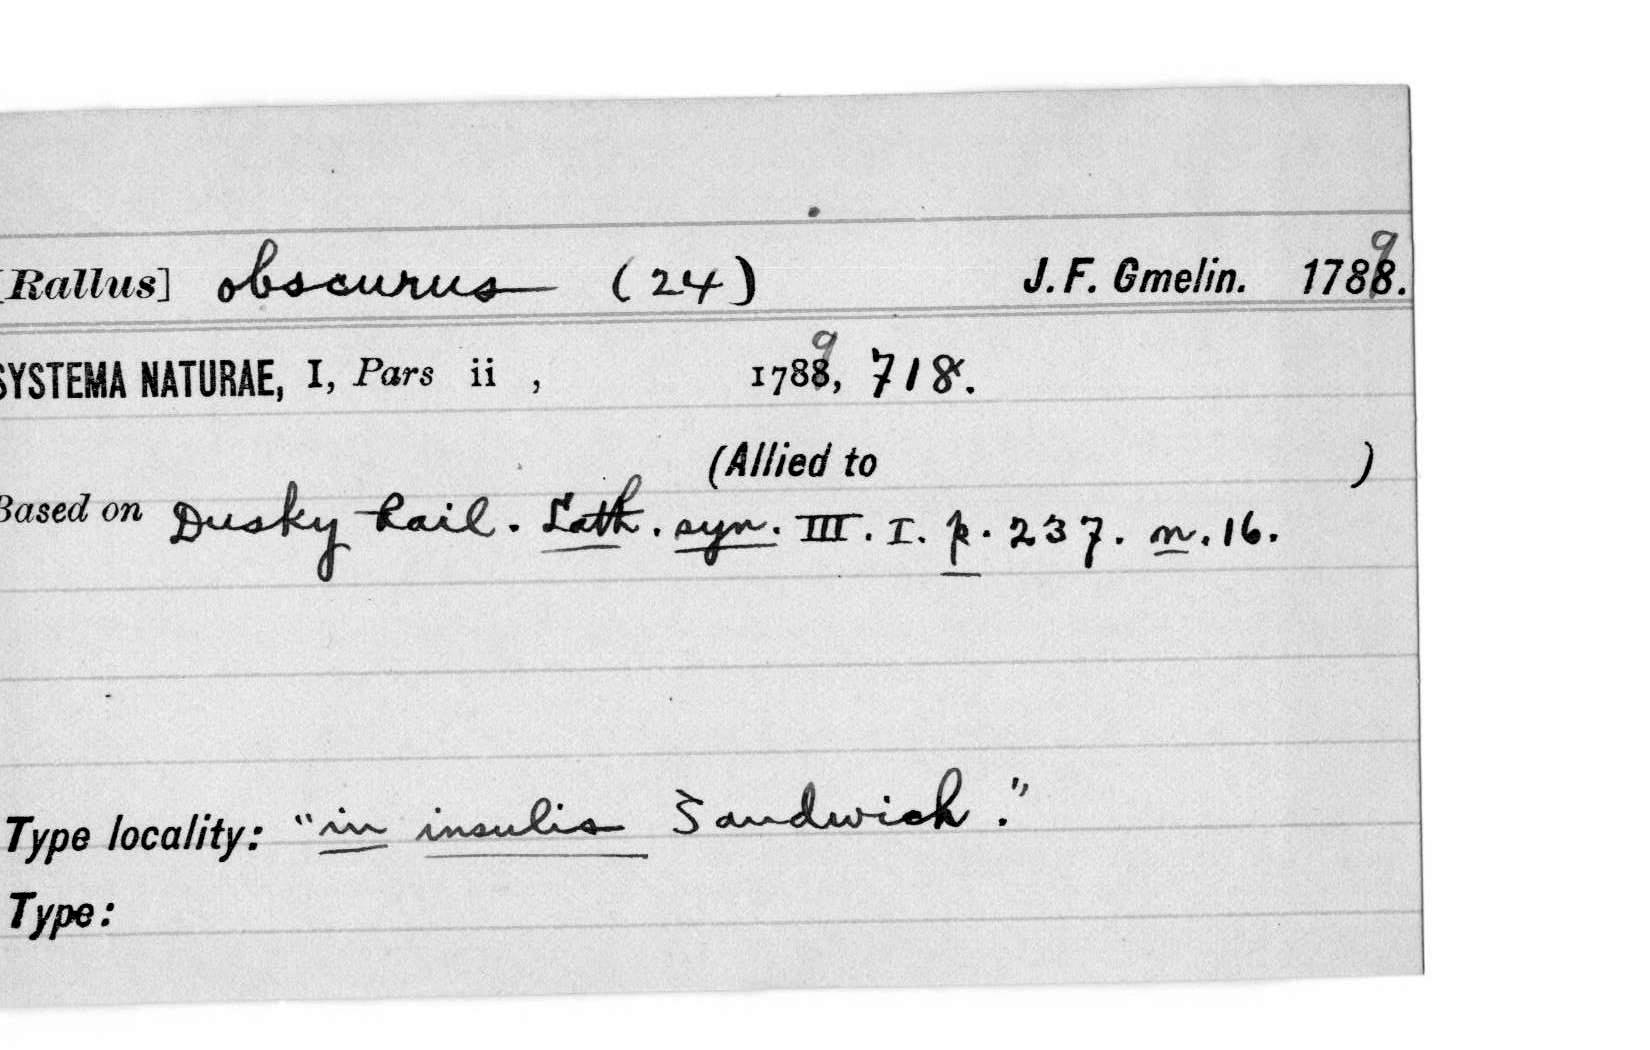 [Rallus] obscurus (24) J. F. Gmelin. 1789.
SYSTEMA NATURAE, I, Pars ii , 1789, 718.
(Allied to )
Based on Dusky Rail. Lath. syn. III. I. p. 237. n. 16.
Type locality: "in insulis Sandwich."
Type: